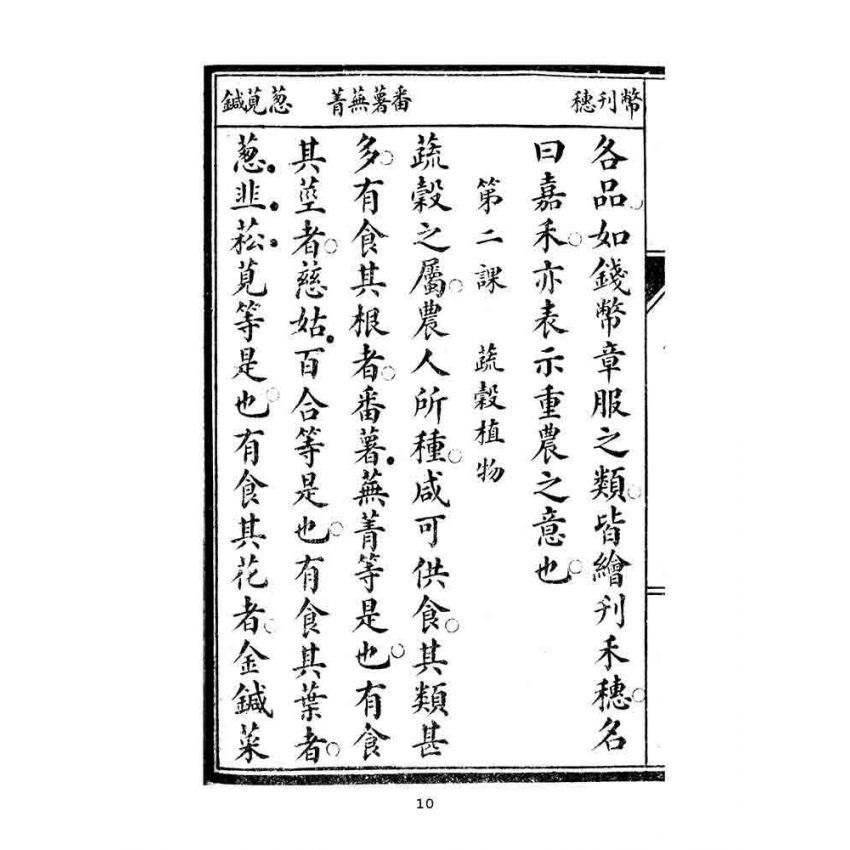 幣刊穗
番薯蕪菁
葱莧鍼
各品。如錢幣章服之類。皆繪刊禾穗。名
曰嘉禾。亦表示重農之意也。
第二課　蔬穀植物
蔬穀之屬。農人所種。咸可供食。其類甚
多。有食其根者。番薯蕪菁等是也。有食
其莖者。慈姑百合等是也。有食其葉者。
葱韭菘莧等是也。有食其花者。金鍼菜
10